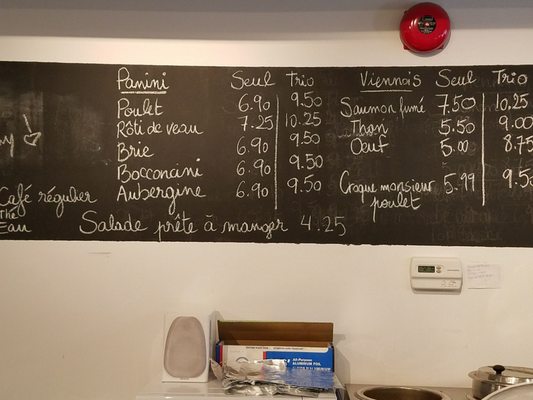 Panini Seul Trio
Poulet 6.90 9.50
Rôti de veau 7.25 10.25
Brie 6.90 9.50
Bocconcini 6.90 9.50
Aubergine 6.90 9.50
Viennois Seul Trio
Saumon fumé 7.50 10.25
Thon 5.50 9.00
Oeuf 5.00 8.75
Croque monsieur 5.99 9.5
poulet
Café régulier
Thé
Eau
Salade prête à manger 4.25
All-Purpose
ALUMINUM FOIL